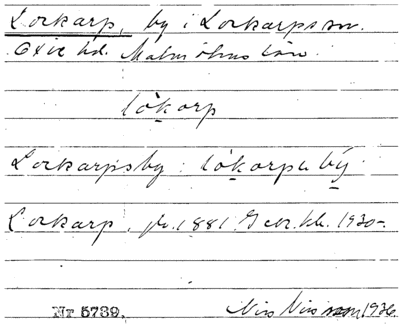 Lockarp, by i Lockarps sn.
Oxie hd. Malmöhus län.
lòkarp
Lockarpsby: lòkarps bý
Lockarp, jb. 1881. Geer. kb. 1930-.
Nr 5739. Nils Nilsson 1936